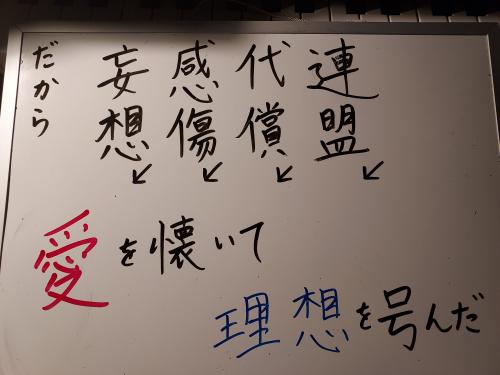 だから
妄想
感傷
代償
連盟
愛を懐いて
理想を号んだ